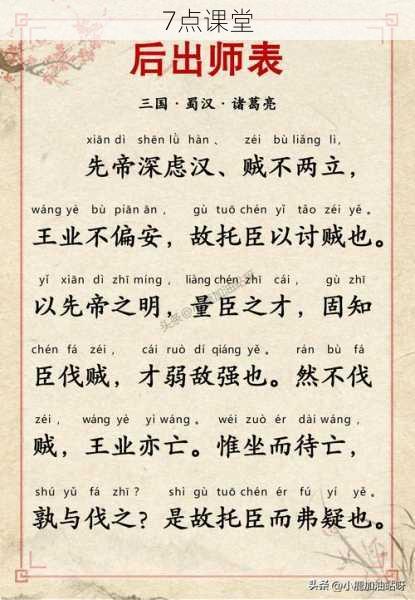 7点课堂
后出师表
三国·蜀汉·诸葛亮
xiān dì shēn lǜ hàn、 zéi bù liǎng lì,
先帝深虑汉、贼不两立，
wáng yè bù piān ān， gù tuō chén yǐ tǎo zéi yě。
王业不偏安，故托臣以讨贼也。
yǐ xiān dì zhī míng，liàng chén zhī cái， gù zhī
以先帝之明，量臣之才，固知
chén fá zéi， cái ruò dí qiáng yě。rán bù fá
臣伐贼，才弱敌强也。然不伐
zéi，wáng yè yì wáng。wéi zuò ér dài wáng，
贼，王业亦亡。惟坐而待亡，
shú yǔ fá zhī？ shì gù tuō chén ér fú yí yě。
孰与伐之？是故托臣而弗疑也。
头条@小熊加油站呀
头条@小熊加油站呀